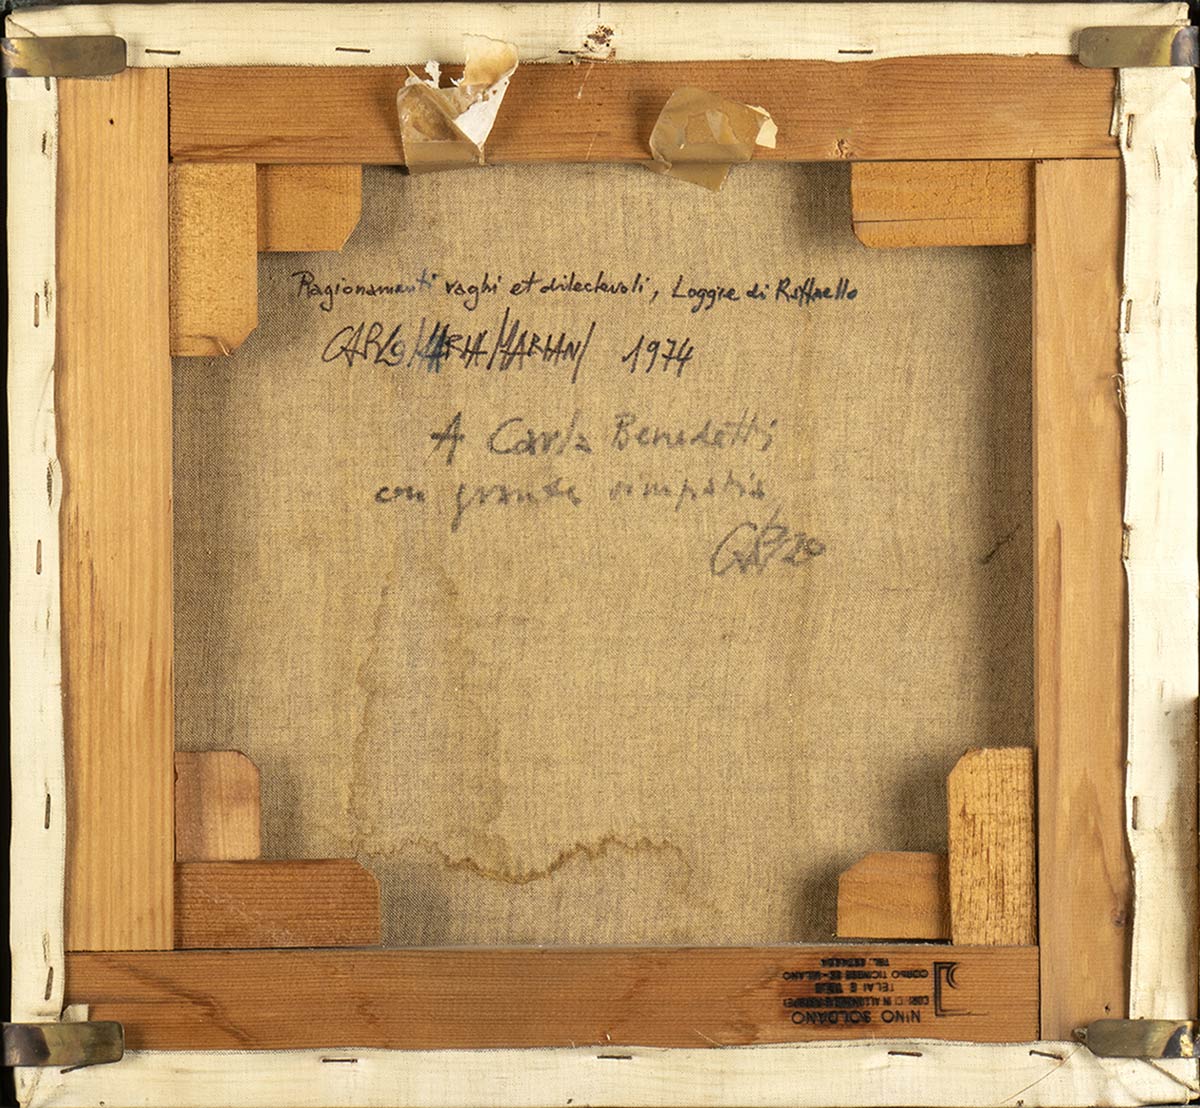 Ragionamenti vaghi et dilectevoli, Logge di Raffaello
CARLO MARIA MARIANI 1974
A Carla Benedetti
con grande simpatia
CARLO
NINO SOLDANO
IN ALLUMINIO
TELAI E TELE
CORSO TICINESE MILANO
TEL.